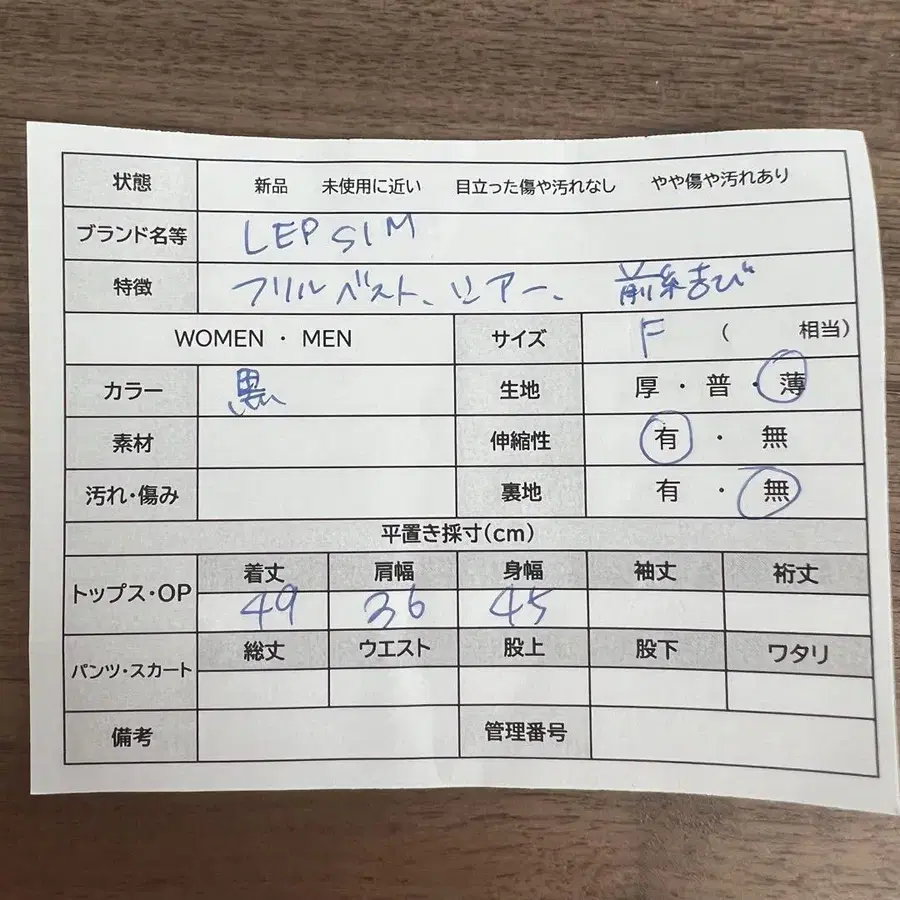 状態 新品 未使用に近い 目立った傷や汚れなし やや傷や汚れあり
ブランド名等 LEPSIM
特徴 フリルベスト、シアー、前結び
WOMEN ・ MEN サイズ F ( 相当)
カラー 黒 生地 厚 ・ 普 ・ 薄
素材 伸縮性 有 ・ 無
汚れ・傷み 裏地 有 ・ 無
平置き採寸(cm)
トップス・OP 着丈 肩幅 身幅 袖丈 裄丈
49 36 45
パンツ・スカート 総丈 ウエスト 股上 股下 ワタリ
備考 管理番号